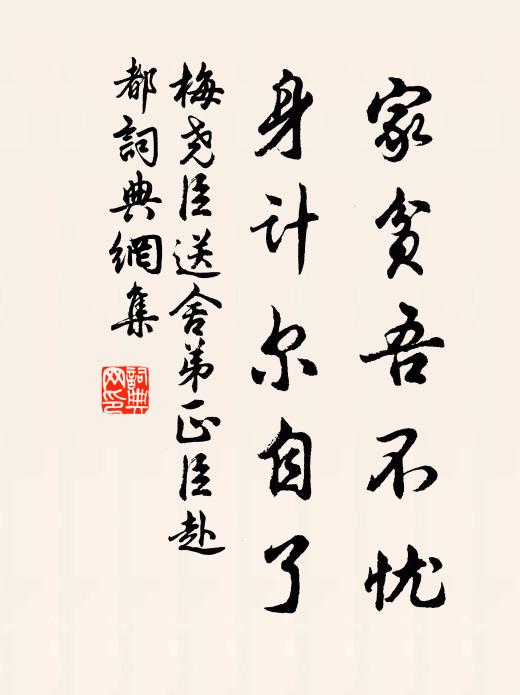 家贫吾不忧
身计尔自了
梅尧臣送舍弟正臣赴
都詞典網集
詞典
网印